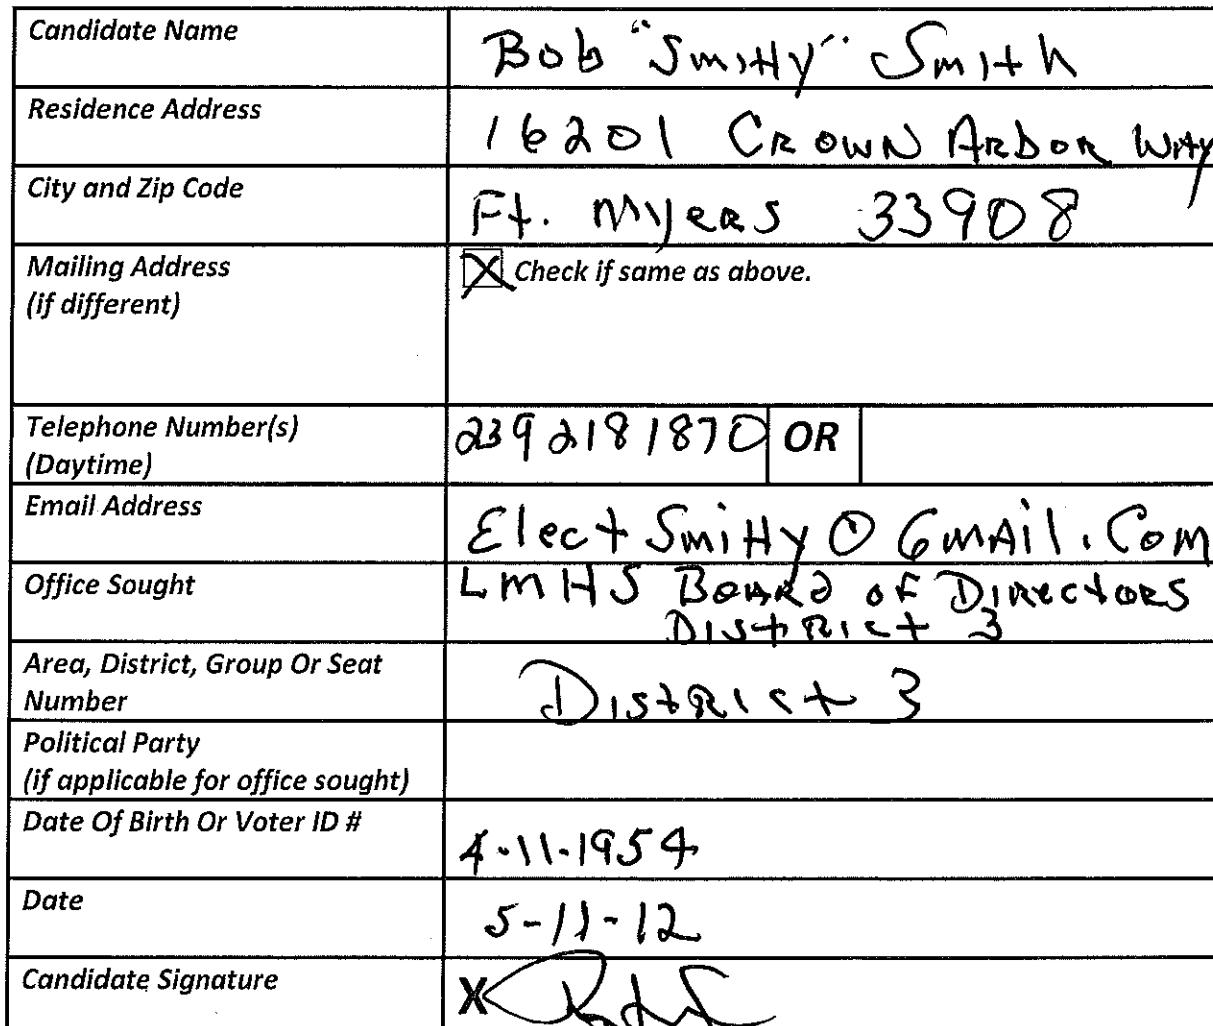 Candidate Name
Bob "Smitty" Smith
Residence Address
16201 Crown Arbor Way
City and Zip Code
Ft. Myers 33908
Mailing Address
(if different)
X Check if same as above.
Telephone Number(s)
(Daytime)
2392181870 OR
Email Address
ElectSmitty@Gmail.Com
Office Sought
LMHS Board of Directors
District 3
Area, District, Group Or Seat
Number
District 3
Political Party
(if applicable for office sought)
Date Of Birth Or Voter ID #
4-11-1954
Date
5-11-12
Candidate Signature
X